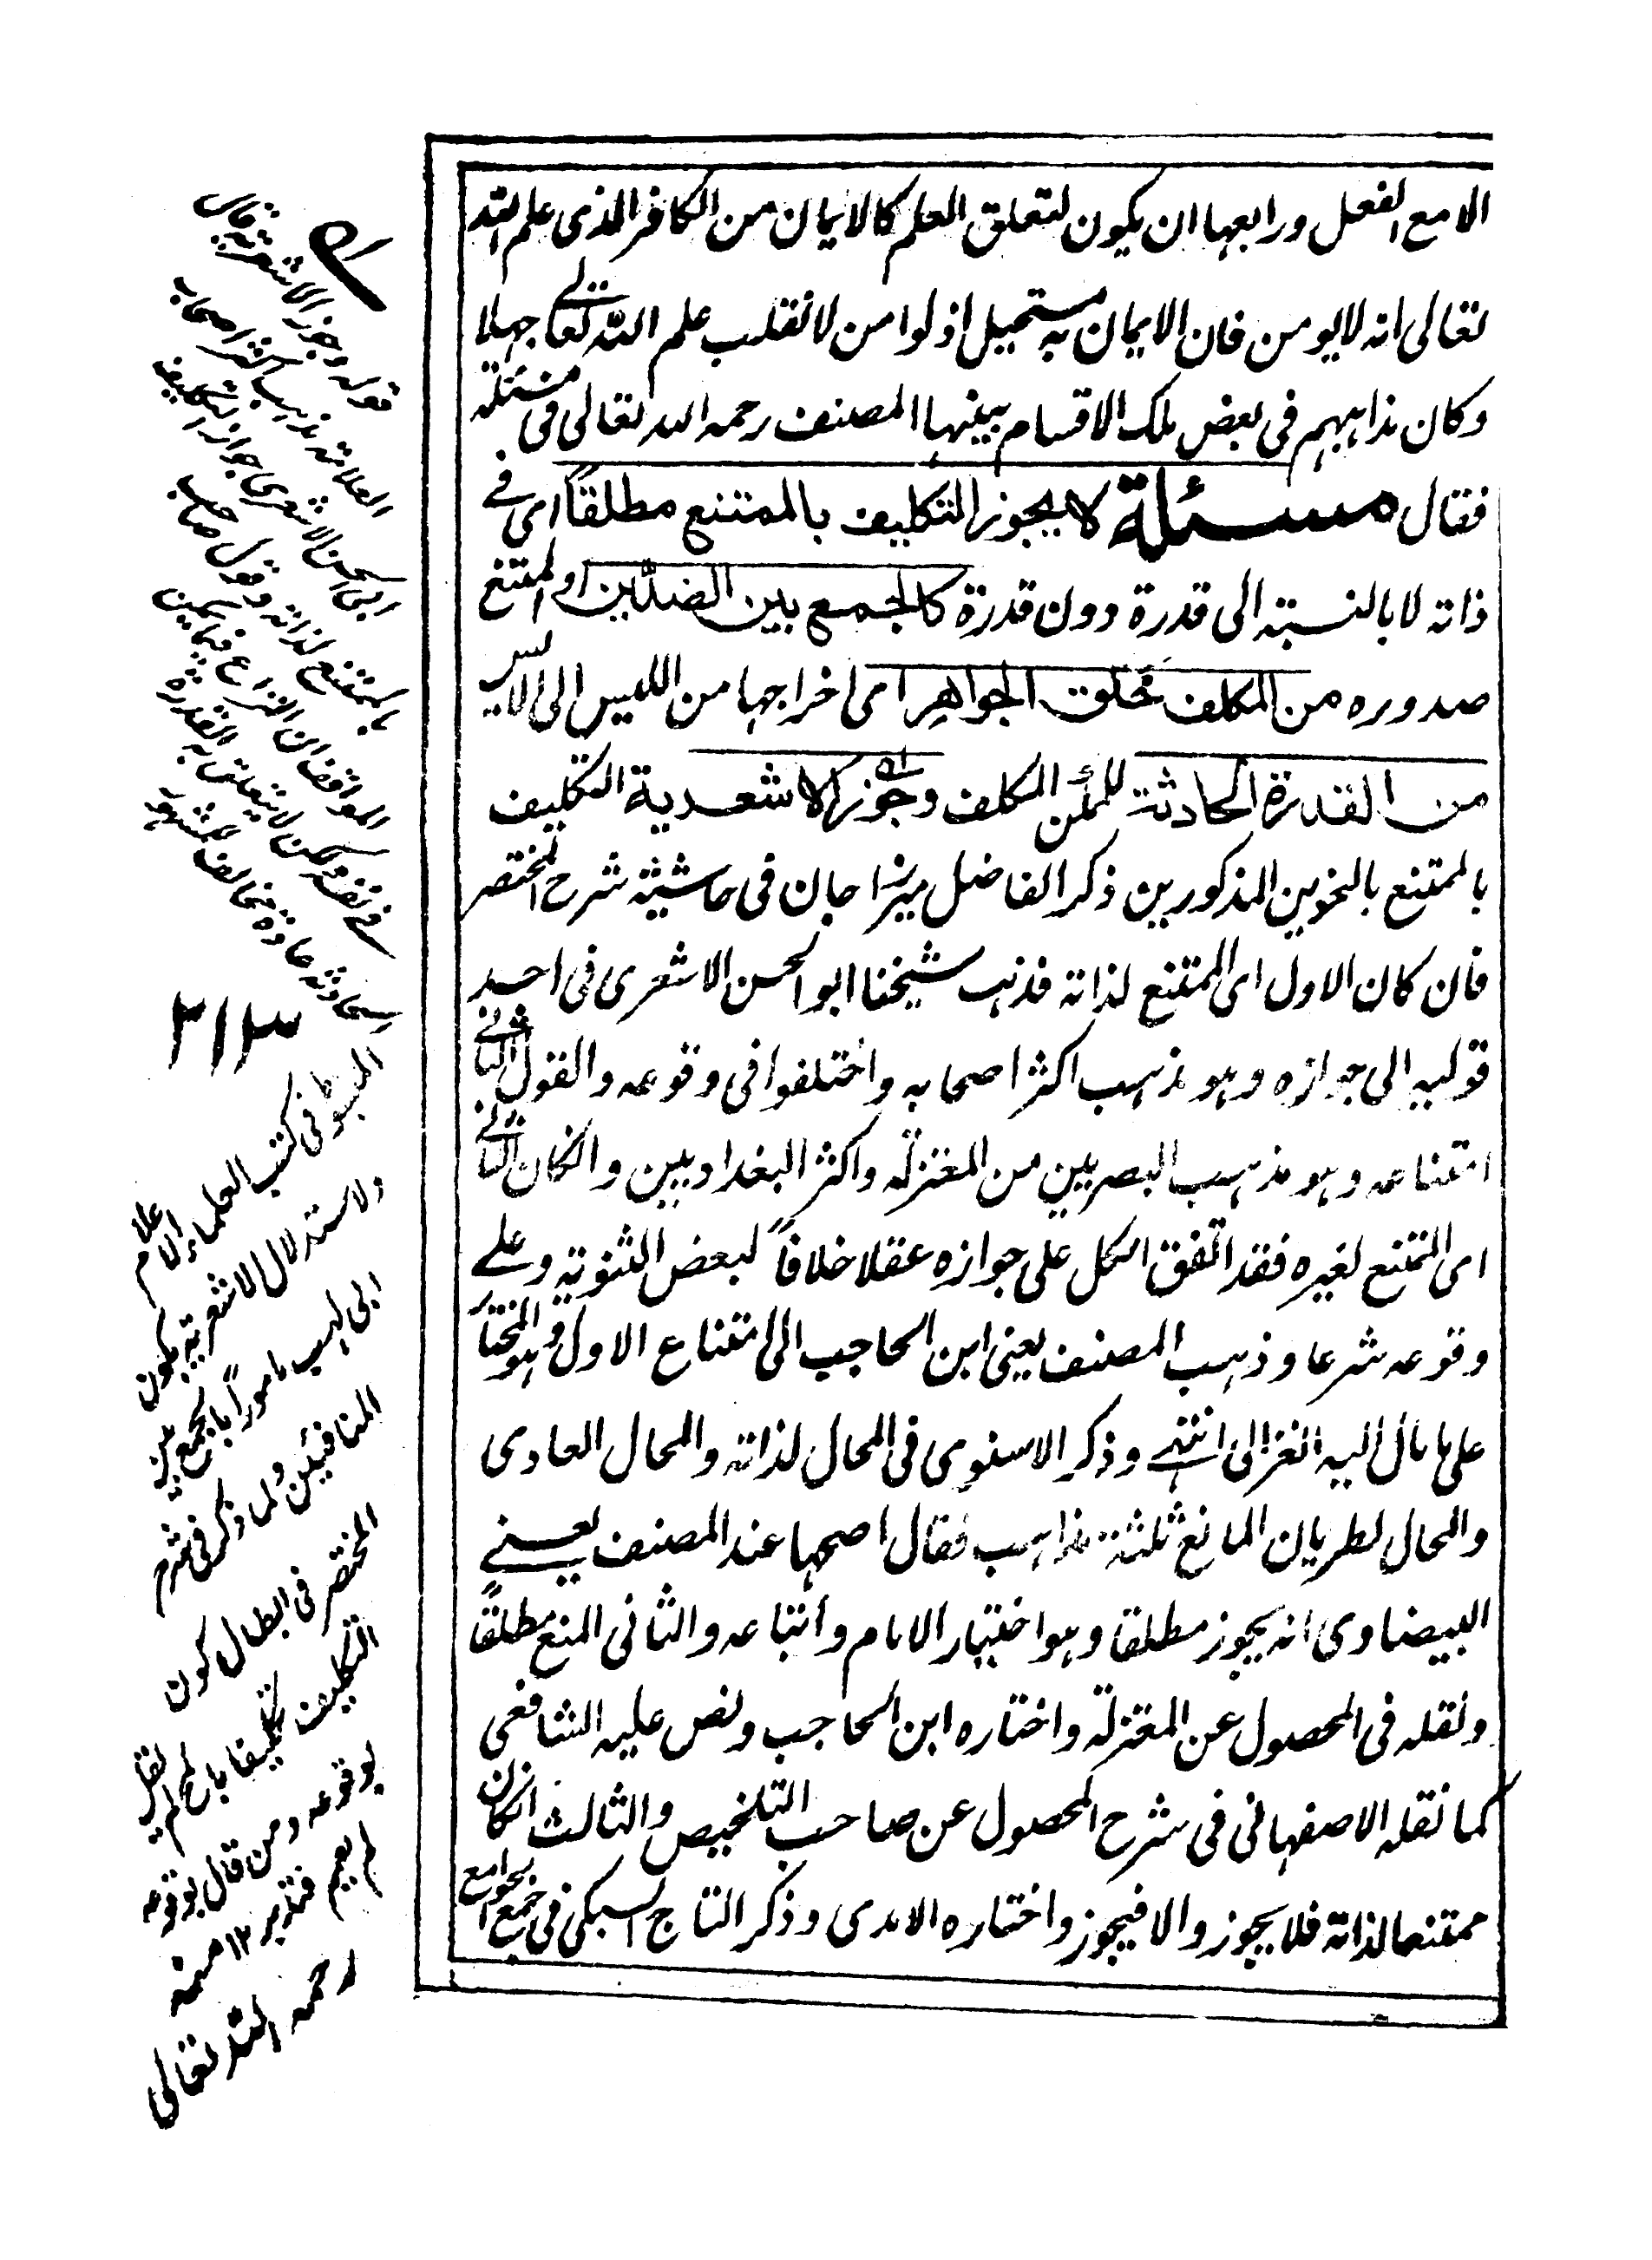 الا مع الفعل ورابعها ان يكون لتعلق العلم كالايمان من الكافر الذى علم الله
تعالى انه لا يومن فان الايمان به مستحيل اذ لو امن لانقلب علم الله تعالى جهلا
وكان مذاهبهم فى بعض تلك الاقسام بينها المصنف رحمه الله تعالى فى مسئلة
فقال مسئلة لا يجوز التكليف بالممتنع مطلقاً اى فى
ذاته لا بالنسبة الى قدرة دون قدرة كالجمع بين الضدين او الممتنع
صدوره من المكلف كخلق الجواهر اى اخراجها من الليس الى الايس
من القدرة الحادثة للممكن المكلف وجوز الاشعرية التكليف
بالممتنع بالنحوين المذكورين ذكر الفاضل ميرزا جان فى حاشية شرح المختصر
فان كان الاول اى الممتنع لذاته فذهب شيخنا ابو الحسن الاشعرى فى احد
قوليه الى جوازه وهو مذهب اكثر اصحابه واختلفوا فى وقوعه والقول الثانى
امتناعه وهو مذهب البصريين من المعتزلة واكثر البغداديين وانكان الثانى
اى الممتنع لغيره فقد اتفق الكل على جوازه عقلا خلافاً لبعض الثنوية وعلى
وقوعه شرعا وذهب المصنف يعنى ابن الحاجب الى امتناع الاول وهو المختار
على ما مال اليه الغزالى انتهى وذكر الاسنوى فى المحال لذاته والمحال العادى
والمحال لطريان المانع ثلثة مذاهب فقال اصحها عند المصنف يعنى
البيضاوى انه يجوز مطلقا وهو اختيار الامام واتباعه والثانى المنع مطلقاً
ونقله فى المحصول عن المعتزلة واختاره ابن الحاجب ونص عليه الشافعى
كما نقله الاصفهانى فى شرح المحصول عن صاحب التلخيص والثالث انكان
ممتنعا لذاته فلا يجوز والا فيجوز واختاره الامدى وذكر التاج السبكى فى جمع الجوامع
قوله وجوز الاشعرية قال
العلامة ذهب اكثر اصحاب
ابى الحسن الاشعرى جواز التكليف
بالممتنع لذاته وقول صاحب
المواقف ان النزاع فيما يمكن
فى نفسه ولكن لا يتعلق به القدرة
الحادثة عادة مخالف للمشهور
٣١٢
المبسوط فى كتب العلماء الاعلام
ولاستدلال الاشعرية بكون
ابى لهب مامورا بالجمع بين
المتنافيين ولما ذكر فى شرح
المختصر فى ابطال كون
التكليف تكليفا بالمح لم يقل
بوقوعه ومن قال بوقوعه
لم يعمم فتدبر ١٢ منه
رحمه الله تعالى